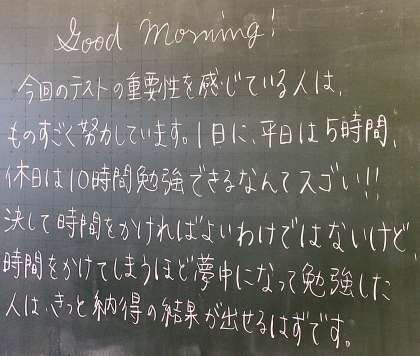 Good Morning!
今回のテストの重要性を感じている人は、
ものすごく努力しています。1日に、平日は5時間、
休日は10時間勉強できるなんてスゴい!!
決して時間をかければよいわけではないけど、
時間をかけてしまうほど夢中になって勉強した
人は、きっと納得の結果が出せるはずです。